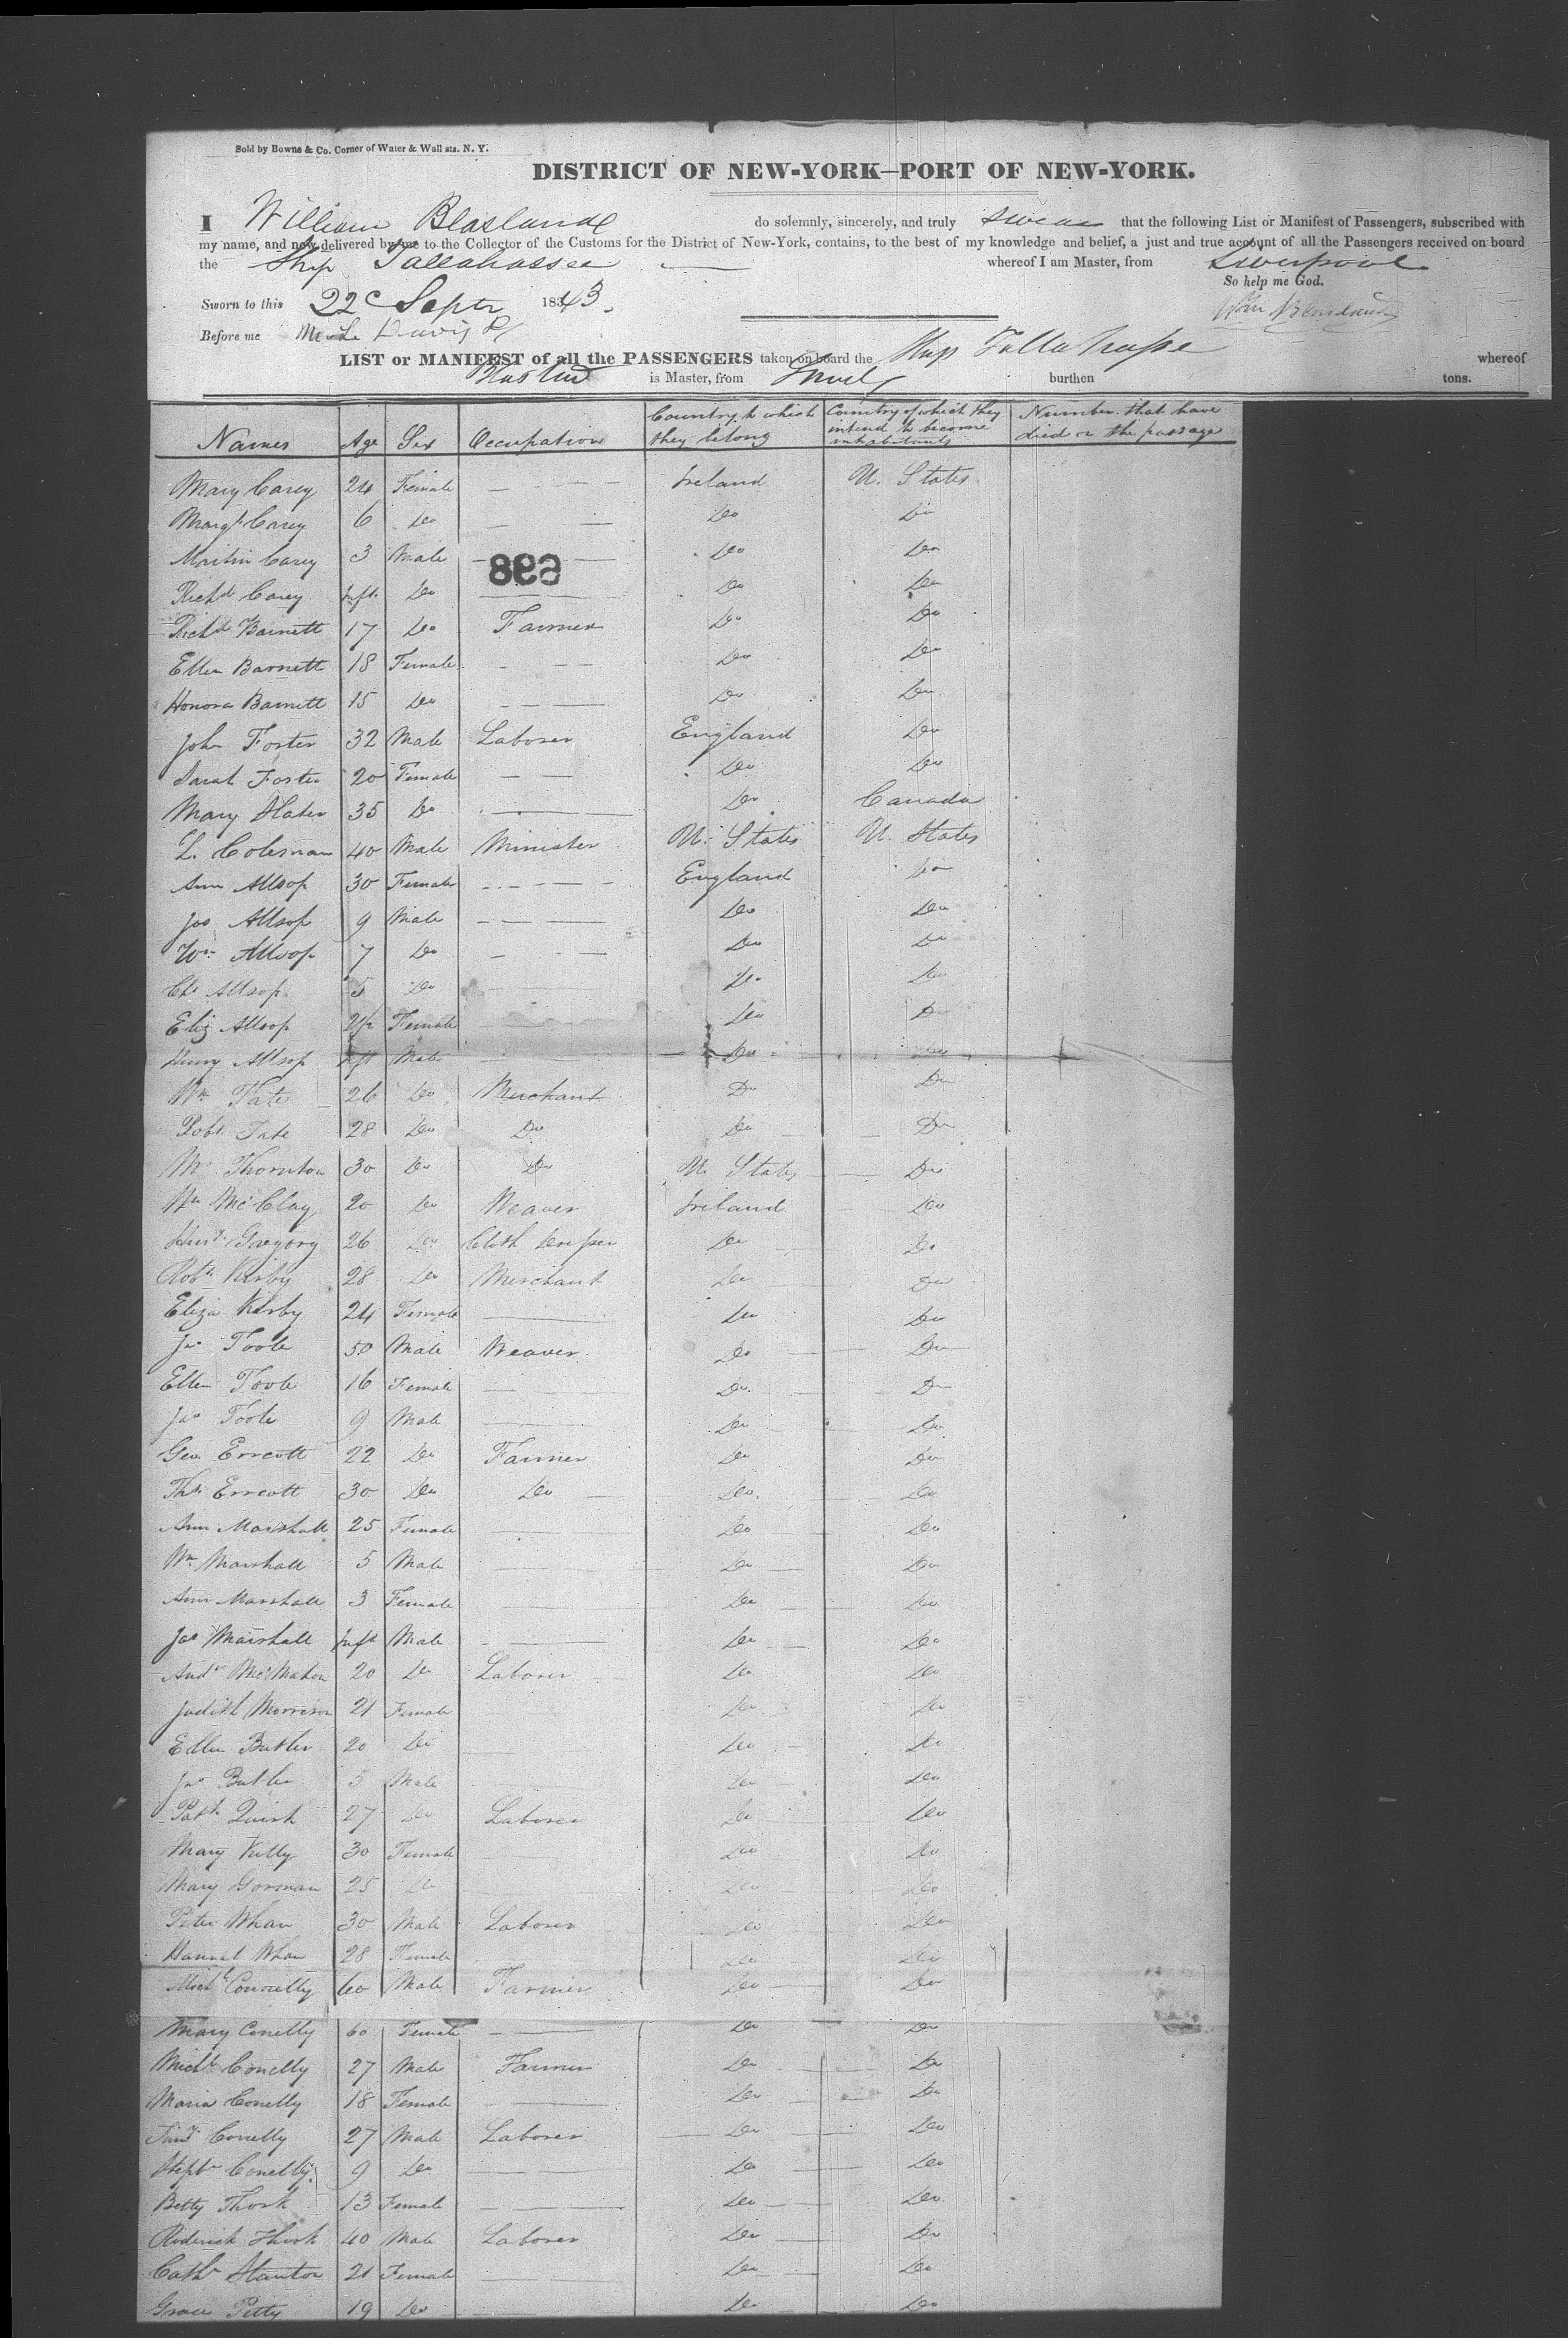 Sold by Bowne & Co. Corner of Water & Wall sts. N. Y.
DISTRICT OF NEW-YORK—PORT OF NEW-YORK.
I William Blasland do solemnly, sincerely, and truly swear that the following List or Manifest of Passengers, subscribed with
my name, and now delivered by me to the Collector of the Customs for the District of New-York, contains, to the best of my knowledge and belief, a just and true account of all the Passengers received on board
the Ship Tallahassee whereof I am Master, from Liverpool
So help me God.
Sworn to this 22 Septr 1843.
Before me Davis
LIST or MANIFEST of all the PASSENGERS taken on board the Ship Tallahasse whereof
is Master, from burthen tons.
Names Age Sex Occupation Country to which they belong Country of which they intend to become inhabitants Number that have died on the passage
Mary Carey 24 Female — Ireland U. States
Margt Carey 6 Do — Do Do
Martin Carey 3 Male — Do Do
898
Richd Carey Inft Do Do Do
Richd Barnett 17 Do Farmer Do Do
Ellen Barnett 18 Female — Do Do
Honora Barnett 15 Do — Do Do
John Foster 32 Male Laborer England Do
Sarah Foster 20 Female — Do Do
Mary Slater 35 Do — Do Canada
L. Coleman 40 Male Minister U. States U. States
Ann Allsop 30 Female — England Do
Jos Allsop 9 Male — Do Do
Wm Allsop 7 Do — Do Do
Chs Allsop 5 Do — Do Do
Eliz Allsop 2½ Female — Do Do
Henry Allsop Inft Male — Do Do
Wm Tate 26 Do Merchant Do Do
Robt Tate 28 Do Do Do Do
Mr Thornton 30 Do Do U. States Do
Wm McClay 20 Do Weaver Ireland Do
Gregory 26 Do Cloth Dresser Do Do
Robt Kirby 28 Do Merchant Do Do
Eliza Kirby 24 Female — Do Do
Jno Toole 50 Male Weaver Do Do
Ellen Toole 16 Female — Do Do
Jas Toole 9 Male — Do Do
Geo Errcott 22 Do Farmer Do Do
Ths Errcott 30 Do Do Do Do
Ann Marshall 25 Female — Do Do
Wm Marshall 5 Male — Do Do
Ann Marshall 3 Female — Do Do
Jas Marshall Inft Male — Do Do
Andw McMahon 20 Do Laborer Do Do
Judith Morrison 21 Female Do Do
Ellen Butler 20 Do — Do Do
Jno Butler 5 Male — Do Do
Patk Quirk 27 Do Laborer Do Do
Mary Kelly 30 Female Do Do
Mary Gorman 25 Do — Do Do
Peter Whan 30 Male Laborer Do Do
Hannah Whan 28 Female Do Do
Michl Connelly 60 Male Farmer Do Do
Mary Conelly 60 Female — Do Do
Michl Conelly 27 Male Farmer Do Do
Maria Conelly 18 Female — Do Do
Conelly 27 Male Laborer Do Do
Stephn Conelly 9 Do — Do Do
Betty 13 Female — Do Do
Roderick 40 Male Laborer Do Do
Cathn Stanton 21 Female — Do Do
Grace Petty 19 Do — Do Do